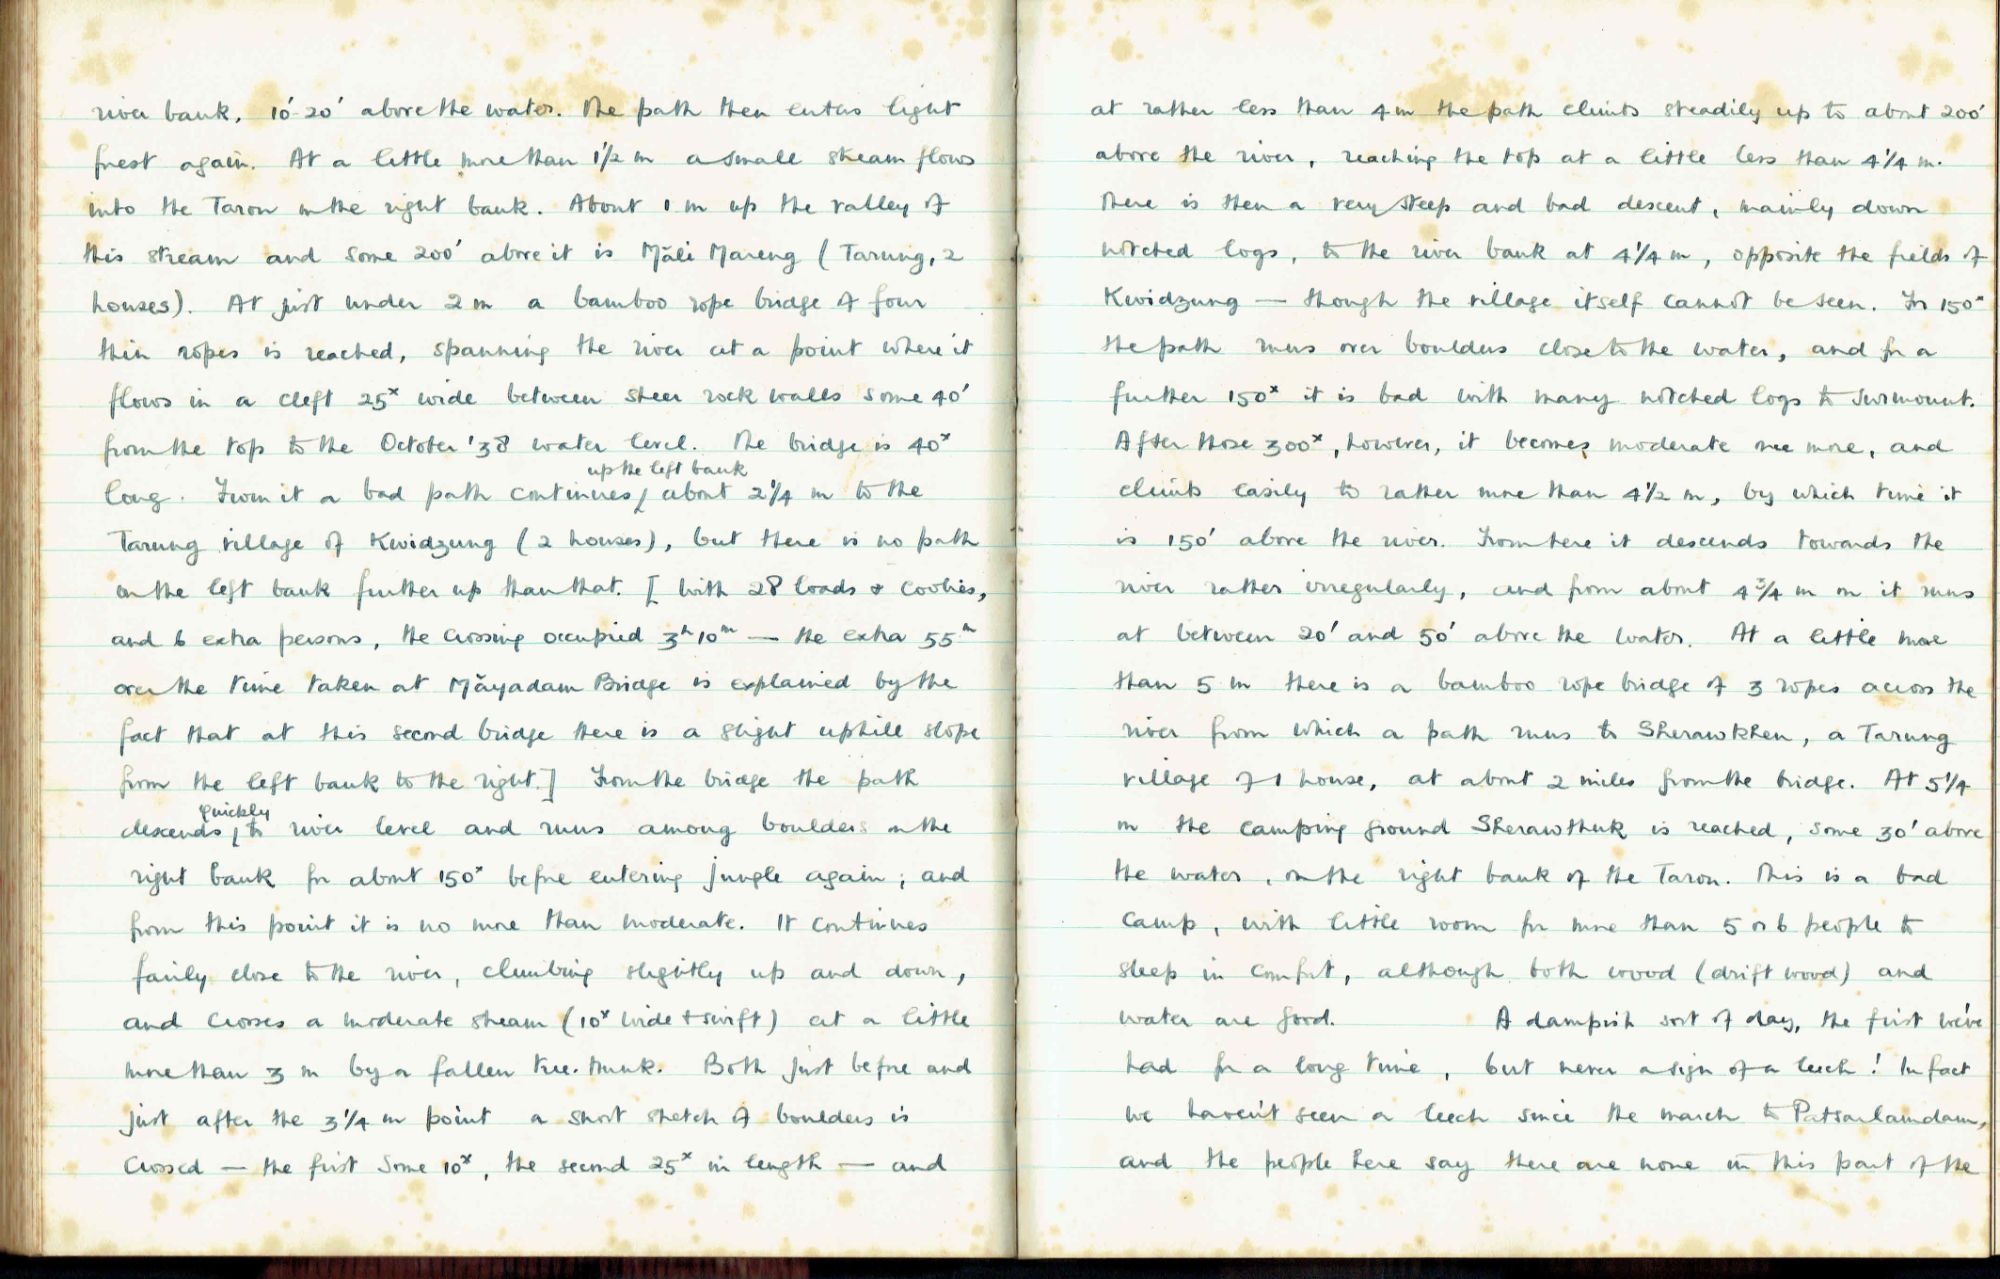 river bank, 10'-20' above the water. The path then enters light
forest again. At a little more than 1½ m a small stream flows
into the Taron on the right bank. About 1 m up the valley of
this stream and some 200' above it is Māli Mareng (Tarung, 2
houses). At just under 2 m a bamboo rope bridge of four
thin ropes is reached, spanning the river at a point where it
flows in a cleft 25ˣ wide between sheer rock walls some 40'
from the top to the October '38 water level. The bridge is 40ˣ
up the left bank
long. From it a bad path continues, about 2¼ m to the
Tarung village of Kwidzung (2 houses), but there is no path
on the left bank further up than that. [With 28 loads & coolies,
and 6 extra persons, the crossing occupied 3ʰ10ᵐ — the extra 55ᵐ
over the time taken at Māyadam Bridge is explained by the
fact that at this second bridge there is a slight uphill slope
from the left bank to the right.] From the bridge the path
quickly
descends, to river level and runs among boulders on the
right bank for about 150ˣ before entering jungle again; and
from this point it is no more than moderate. It continues
fairly close to the river, climbing slightly up and down,
and crosses a moderate stream (10ˣ wide + swift) at a little
more than 3 m by a fallen tree-trunk. Both just before and
just after the 3¼ m point a short stretch of boulders is
crossed — the first some 10ˣ, the second 25ˣ in length — and
at rather less than 4 m the path climbs steadily up to about 200'
above the river, reaching the top at a little less than 4¼ m.
There is then a very steep and bad descent, mainly down
notched logs, to the river bank at 4¼ m, opposite the fields of
Kwidzung — though the village itself cannot be seen. For 150ˣ
the path runs over boulders close to the water, and for a
further 150ˣ it is bad with many notched logs to surmount.
After those 300ˣ, however, it becomes moderate once more, and
climbs easily to rather more than 4½ m, by which time it
is 150' above the river. From here it descends towards the
river rather irregularly, and from about 4¾ m on it runs
at between 20' and 50' above the water. At a little more
than 5 m there is a bamboo rope bridge of 3 ropes across the
river from which a path runs to Sherawkhen, a Tarung
village of 1 house, at about 2 miles from the bridge. At 5¼
m the camping ground Sherawthuk is reached, some 30' above
the water, on the right bank of the Taron. This is a bad
camp, with little room for more than 5 or 6 people to
sleep in comfort, although both wood (drift wood) and
water are good. A dampish sort of day, the first we've
had for a long time, but never a sign of a leech! In fact
we haven't seen a leech since the march to Patsarlamdam,
and the people here say there are none in this part of the